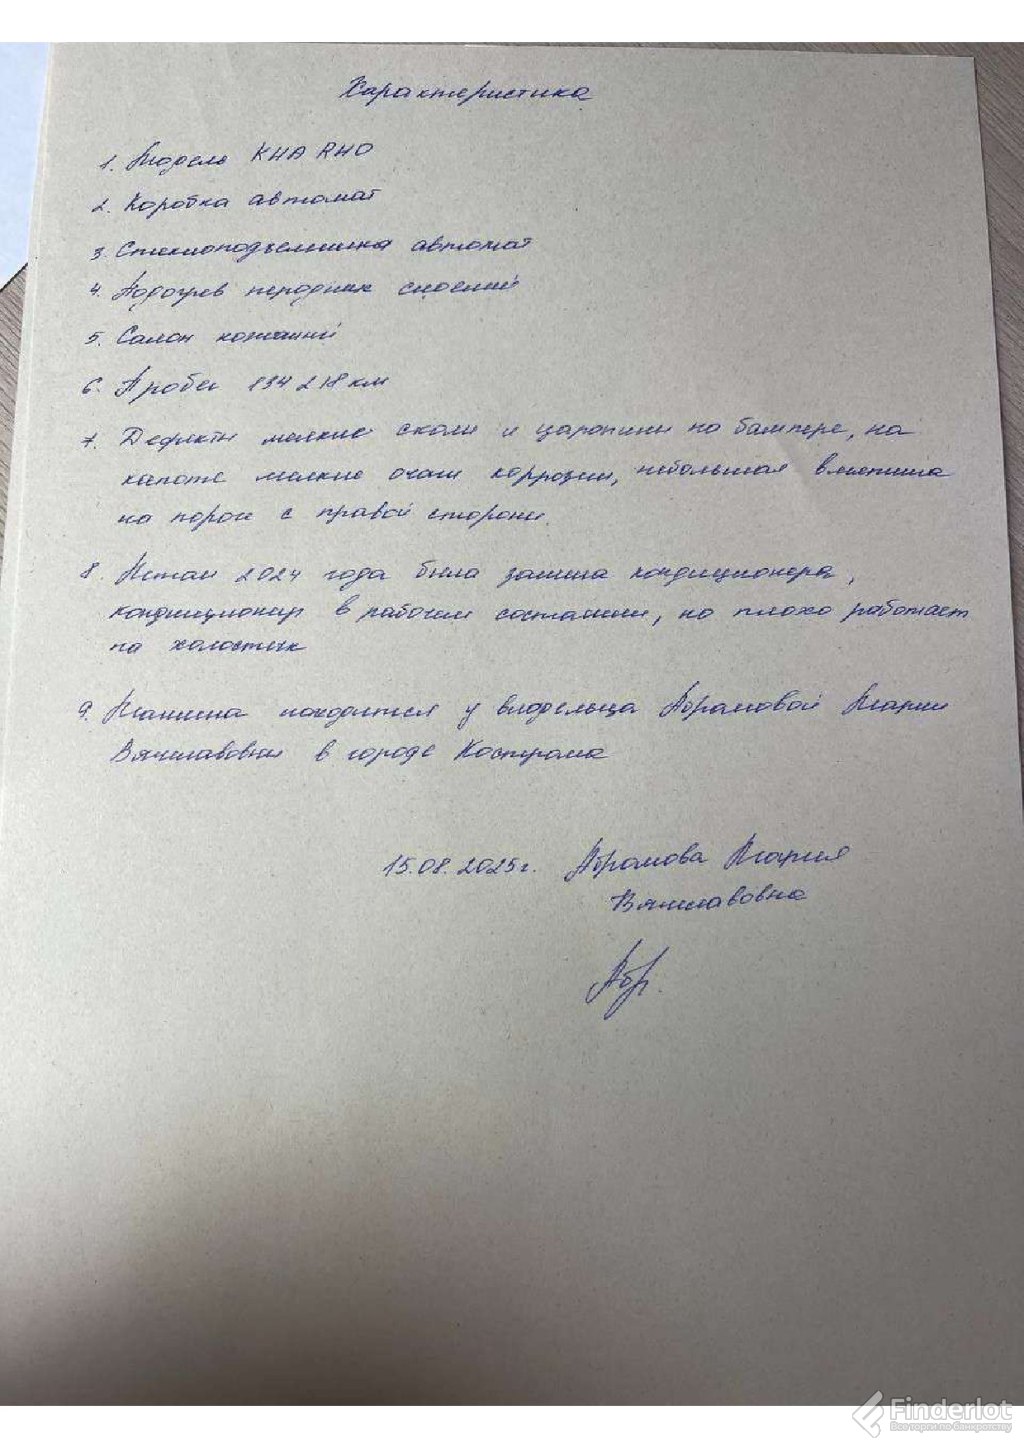 Характеристика
1. Модель KIA RIO
2. Коробка автомат
3. Стеклоподъемники автомат
4. Подогрев передних сидений
5. Салон кожаный
6. Пробег 134 218 км
7. Дефекты мелкие сколы и царапины на бампере, на
капоте мелкие очаги коррозии, небольшая вмятина
на пороге с правой стороны
8. 2024 года была замена кондиционера,
кондиционер в рабочем состоянии, но плохо работает
на холостых
9. Машина находится у владельца Абрамовой Марии
Вячеславовны в городе Кострома
15.08.2025г. Абрамова Мария
Вячеславовна
Абр.
Finderlot
Все торги по банкротству